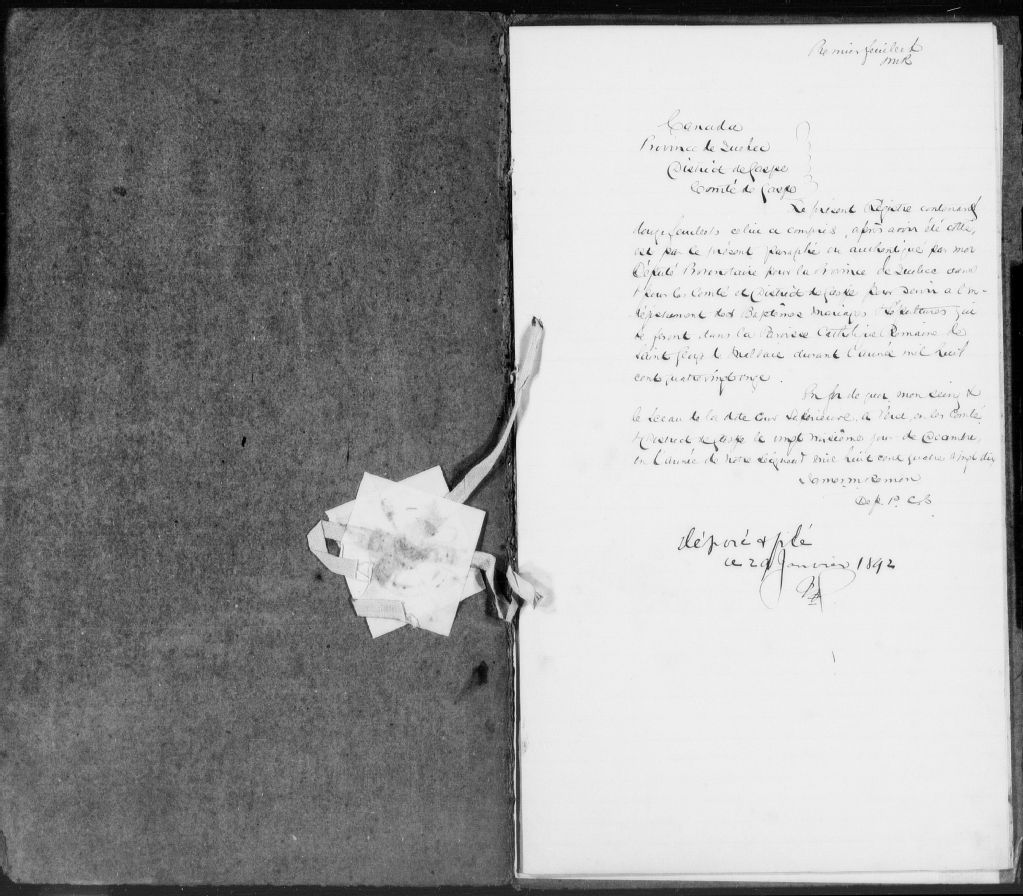 Premier feuillet
Canada
Province de Quebec
District de Gaspé
Comté de Gaspé
Le présent Régistre contenant
douze feuillets celui ci compris, après avoir été cotté,
est par le présent paraphé ou authentiqué par moi
Député Protonotaire pour la Province de Quebec dans
& pour les Comté et District de Gaspé pour servir a l'en-
régistrement des Baptêmes Mariages & Sépultures qui
se feront dans la Paroisse Catholique Romaine de
Saint de Malbaie durant l'année mil huit
cent quatre vingt onze.
En foi de quoi, mon seing &
le sceau de la dite Cour Supérieure, à Percé, en les Comté
& District de Gaspé le vingt jour de Décembre,
en l'année de Notre Seigneur mil huit cent quatre vingt dix
Dep. P. C. S.
déposé & filé
ce Janvier 1892